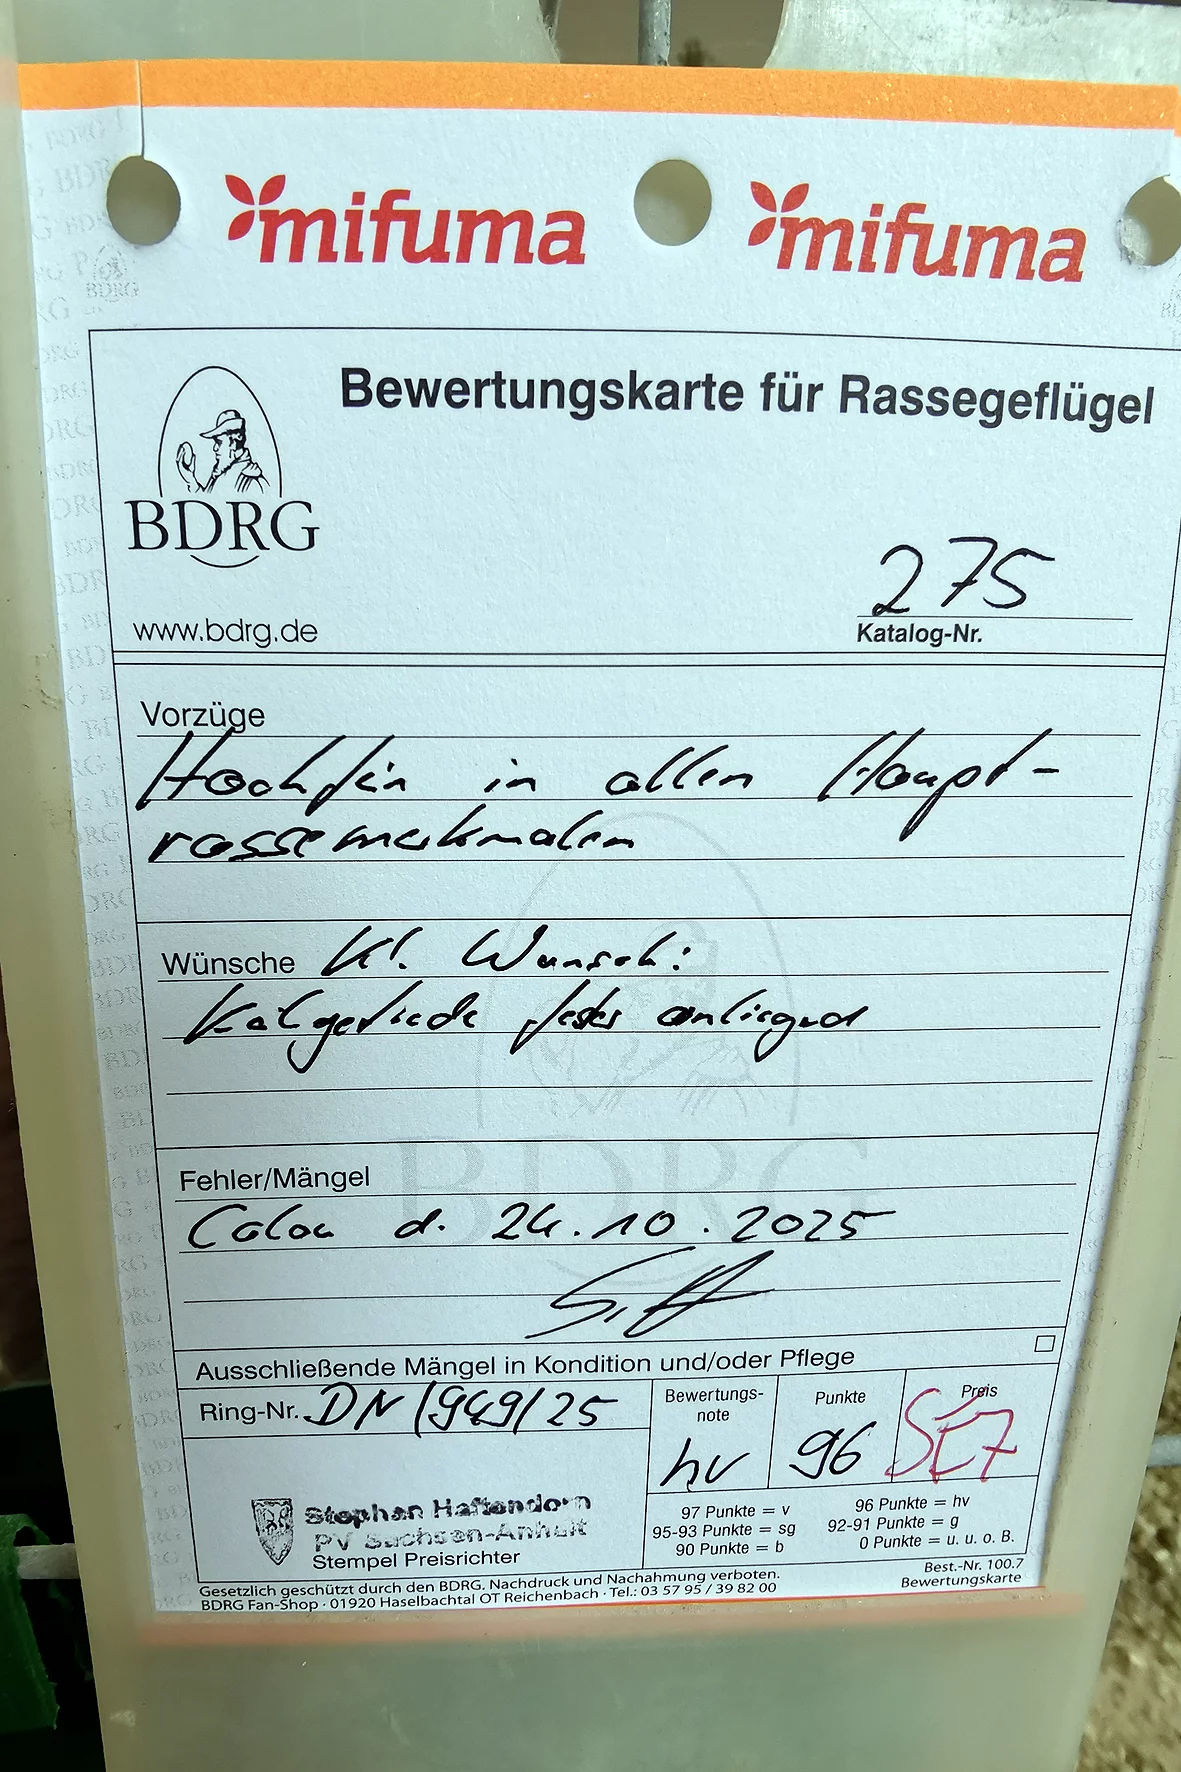 mifuma mifuma
Bewertungskarte für Rassegeflügel
BDRG
www.bdrg.de
275
Katalog-Nr.
Vorzüge
Hochfein in allen Haupt-
rassemerkmalen
Wünsche Kl. Wunsch:
fester anliegend
Fehler/Mängel
Calau d. 24.10.2025
Ausschließende Mängel in Kondition und/oder Pflege
Ring-Nr. DN/949/25
Bewertungs-
note
hv
Punkte
96
Preis
Stephan Haftendorn
PV Sachsen-Anhalt
Stempel Preisrichter
97 Punkte = v
95-93 Punkte = sg
90 Punkte = b
96 Punkte = hv
92-91 Punkte = g
0 Punkte = u. u. o. B.
Gesetzlich geschützt durch den BDRG. Nachdruck und Nachahmung verboten.
BDRG Fan-Shop · 01920 Haselbachtal OT Reichenbach · Tel.: 03 57 95 / 39 82 00
Best.-Nr. 100.7
Bewertungskarte